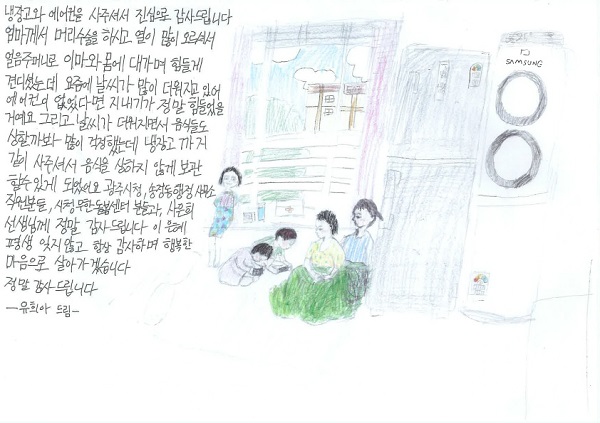 냉장고와 에어컨을 사주셔서 진심으로 감사드립니다
엄마께서 머리수술을 하시고 열이 많이 오르셔서
얼음주머니로 이마와 몸에 대가며 힘들게
견디셨는데 요즘에 날씨가 많이 더워지고 있어
에어컨이 없었다면 지내기가 정말 힘들었을
거예요 그리고 날씨가 더워지면서 음식들도
상할까봐 많이 걱정했는데 냉장고 까지
같이 사주셔서 음식을 상하지 않게 보관
할수 있게 되었어요 광주시청, 송정동행정 사무소
직원분들, 시청 무한돌봄센터 분들과, 사은희
선생님께 정말 감사드립니다 이 은혜
평생 잊지않고 항상 감사하며 행복한
마음으로 살아가겠습니다
정말 감사드립니다
-유희아 드림-
SAMSUNG